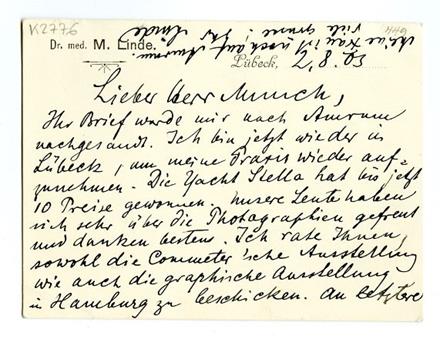 K2776
449
Meine Frau ist noch auf Amrum
viele Grüsse, Ihr Linde
Dr. med. M. Linde.
Lübeck, 30. 8, 2
Lieber Herr Munch,
Ihr Brief wurde mir nach Amrum
nachgesandt. Ich bin jetzt wieder in
Lübeck, um meine Praxis wieder auf-
zunehmen. Die Yacht Stella hat bis jetzt
10 Preise gewonnen. Unsere Leute haben
sich sehr über die Photographien gefreut
und danken bestens. Ich rate Ihnen,
sowohl die Commeter'sche Ausstellung
wie auch die graphische Ausstellung
in Hamburg zu beschicken. An letztere